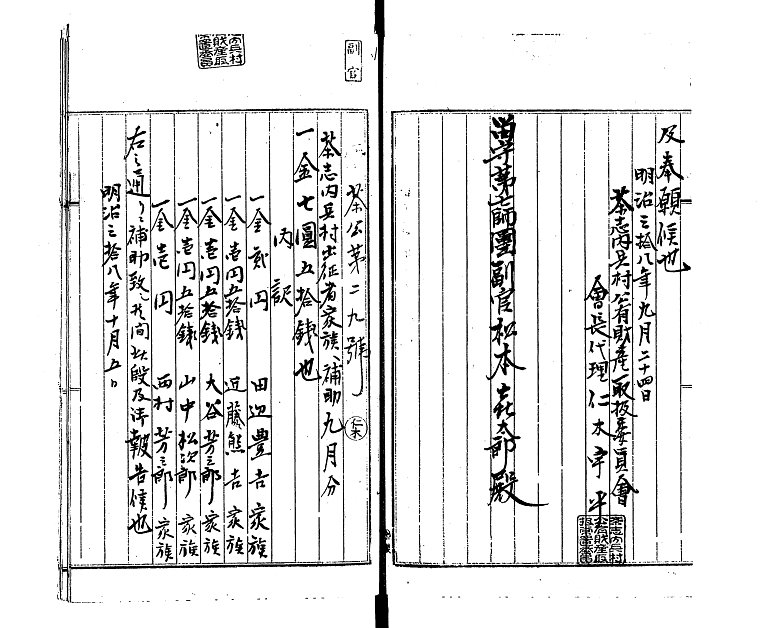 及奉願候也
明治三拾八年九月二十四日
茶志内兵村公有財産取扱委員會
會長代理仁木宇平
留守第七師團副官松本喜太郎殿
副官
茶公第二九號
仁木
茶志内兵村出征者家族ヘ補助九月分
一金七圓五拾錢也
内訳
一金貳円 田辺豊吉家族
一金壱円五拾錢 近藤熊吉家族
一金壱円五拾錢 大谷芳三郎家族
一金壱円五拾錢 山中松次郎家族
一金壱円 西村芳三郎家族
右之通リ補助致候間此段及御報告候也
明治三拾八年十月五日